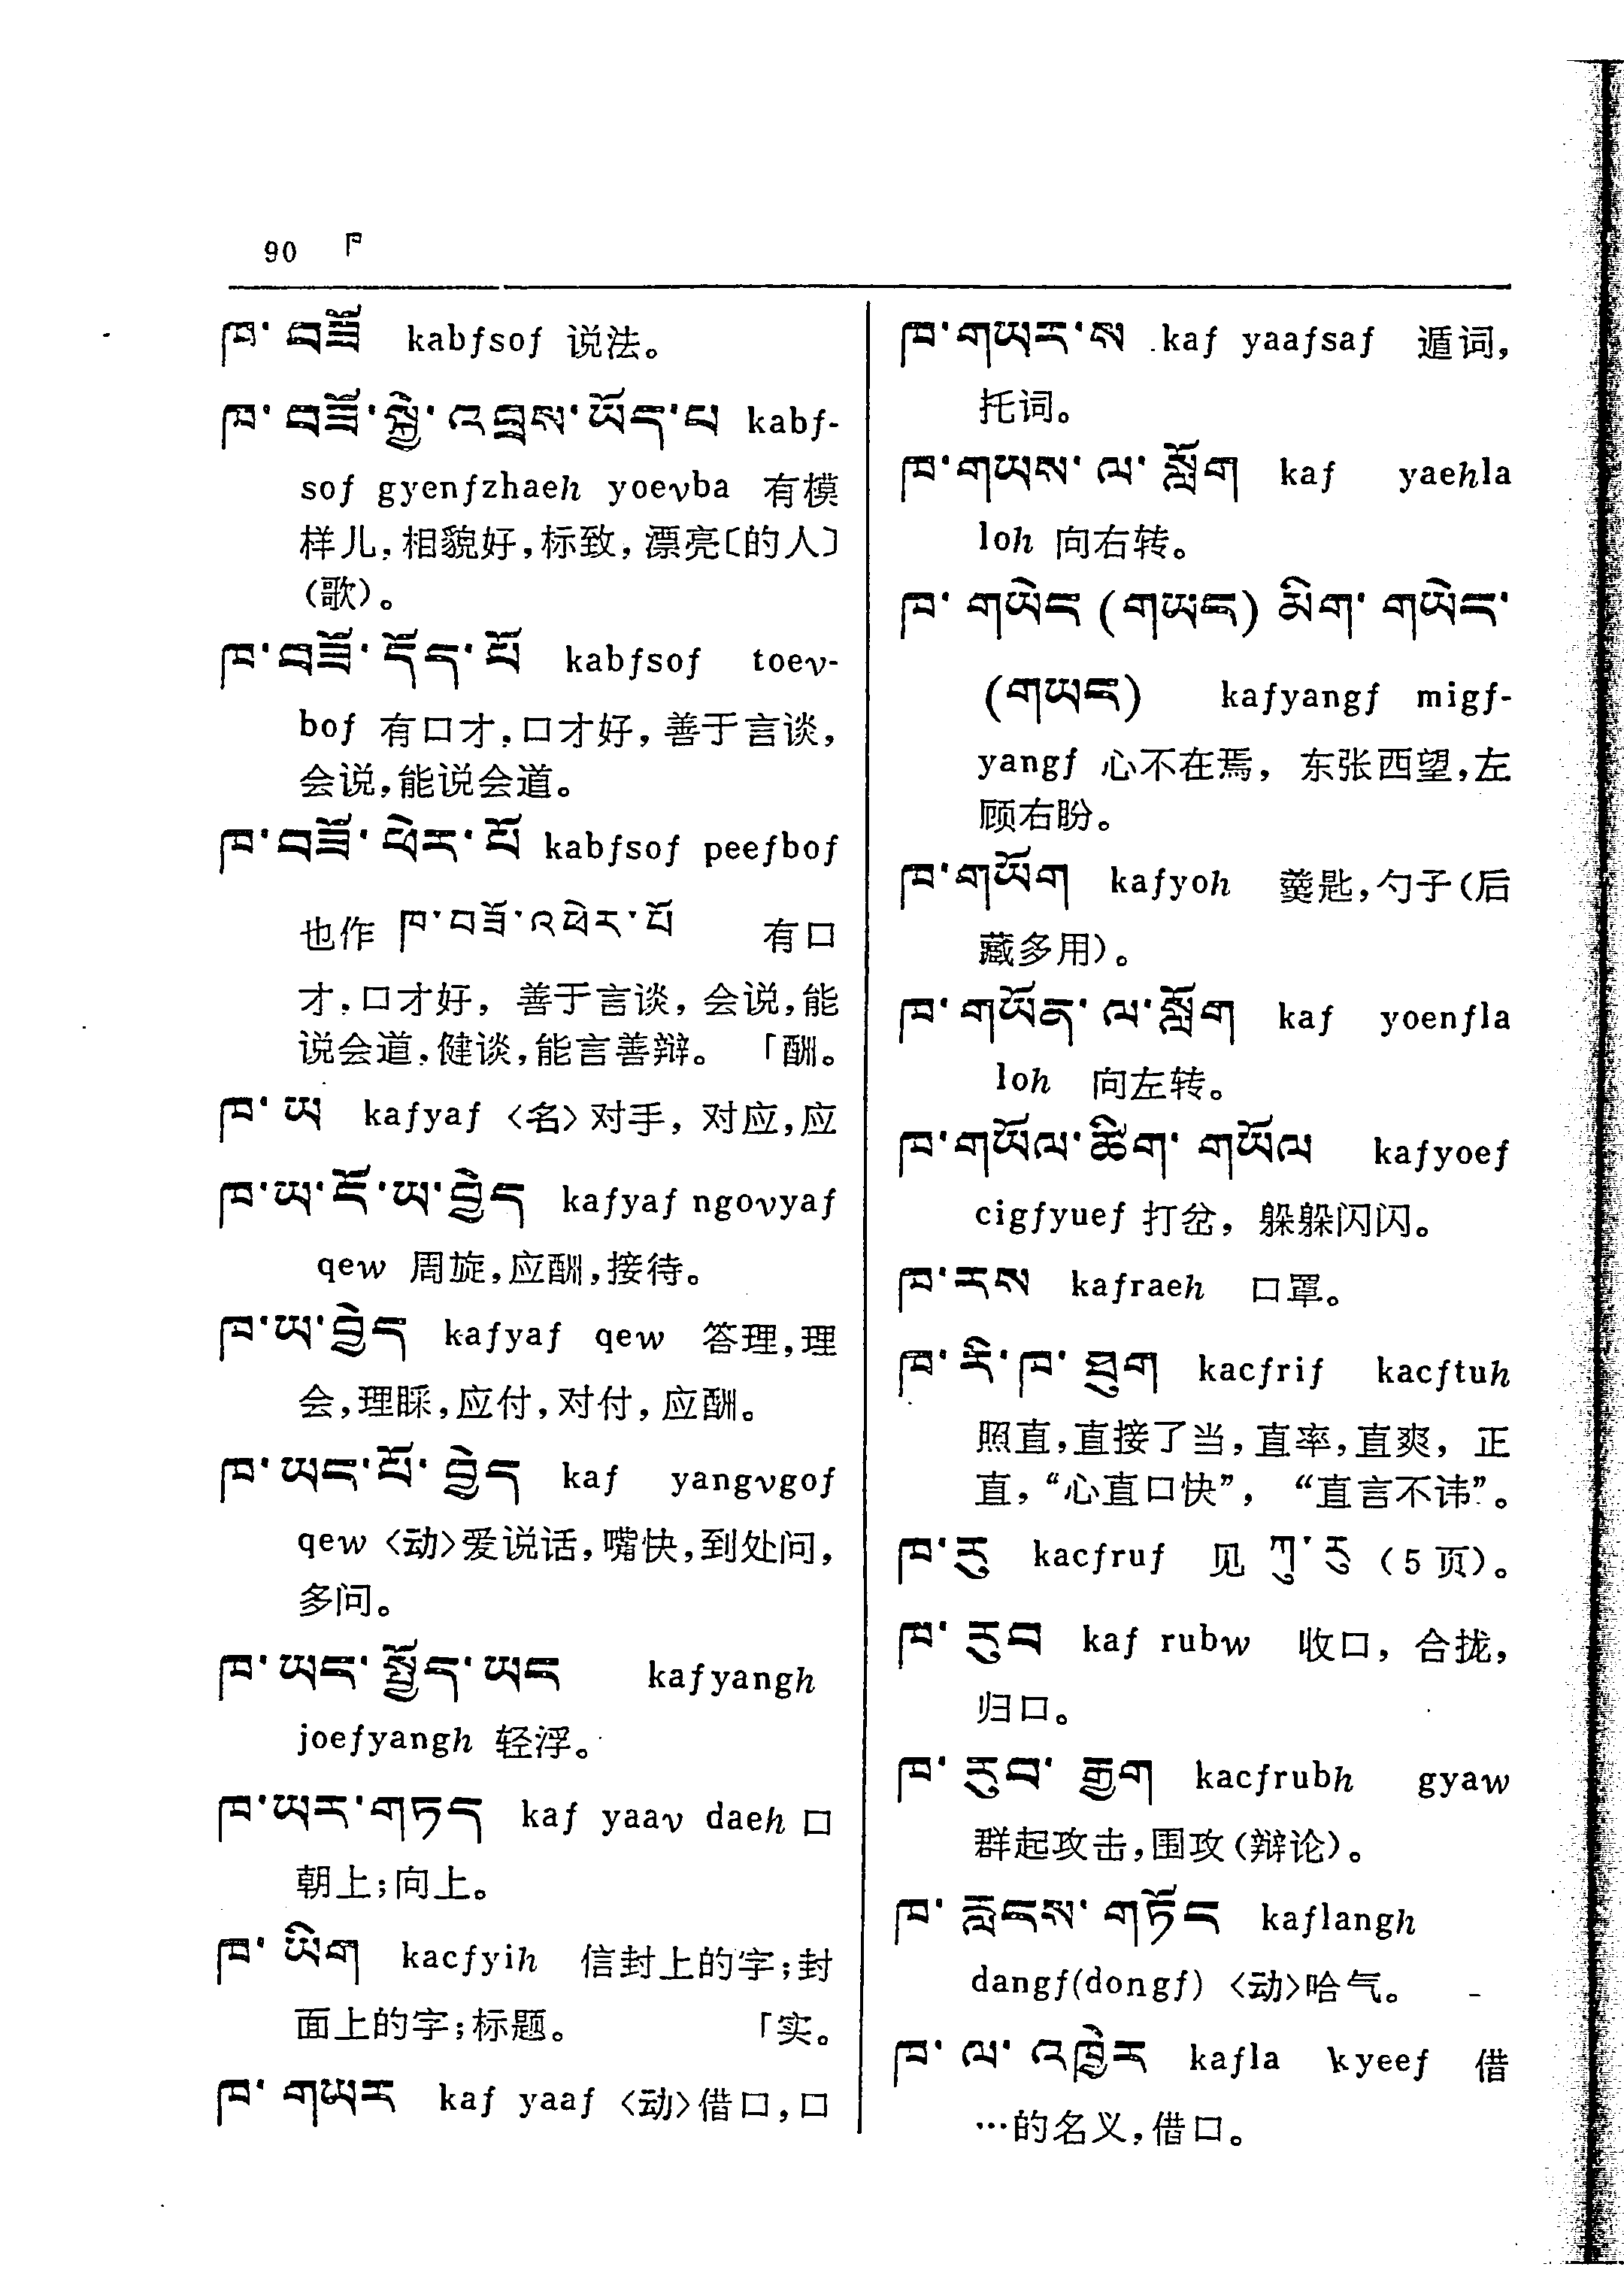 90 ཁ
ཁ་བཟོ kabfsof 说法。
ཁ་བཟོ་སྐྱེ་འབྲས་ཡོད་པ kabf-
sof gyenfzhaeh yoevba 有模
样儿,相貌好,标致,漂亮〔的人〕
(歌)。
ཁ་བཟོ་དོད་པོ kabfsof toev-
bof 有口才,口才好,善于言谈,
会说,能说会道。
ཁ་བཟོ་ཕེར་པོ kabfsof peefbof
也作 ཁ་བཟོ་འཕེར་པོ 有口
才,口才好,善于言谈,会说,能
说会道,健谈,能言善辩。 「酬。
ཁ་ཡ kafyaf 〈名〉对手,对应,应
ཁ་ཡ་ངོ་ཡ་བྱེད kafyaf ngovyaf
qew 周旋,应酬,接待。
ཁ་ཡ་བྱེད kafyaf qew 答理,理
会,理睬,应付,对付,应酬。
ཁ་ཡང་པོ་བྱེད kaf yangvgof
qew 〈动〉爱说话,嘴快,到处问,
多问。
ཁ་ཡང་སྤྱོད་ཡང kafyangh
joefyangh 轻浮。
ཁ་ཡར་གཏད kaf yaav daeh 口
朝上;向上。
ཁ་ཡིག kacfyih 信封上的字;封
面上的字;标题。 「实。
ཁ་གཡར kaf yaaf 〈动〉借口,口
ཁ་གཡར་ས kaf yaafsaf 遁词,
托词。
ཁ་གཡས་ལ་སློག kaf yaehla
loh 向右转。
ཁ་གཡེང(གཡང)མིག་གཡེང་
(གཡང) kafyangf migf-
yangf 心不在焉,东张西望,左
顾右盼。
ཁ་གཡོག kafyoh 羹匙,勺子(后
藏多用)。
ཁ་གཡོན་ལ་སློག kaf yoenfla
loh 向左转。
ཁ་གཡོལ་ཚིག་གཡོལ kafyoef
cigfyuef 打岔,躲躲闪闪。
ཁ་རས kafraeh 口罩。
ཁ་རི་ཁ་ཐུག kacfrif kacftuh
照直,直接了当,直率,直爽,正
直,“心直口快”,“直言不讳”。
ཁ་རུ kacfruf 见 ཀུ་རུ (5页)。
ཁ་རུབ kaf rubw 收口,合拢,
归口。
ཁ་རུབ་རྒྱག kacfrubh gyaw
群起攻击,围攻(辩论)。
ཁ་རླངས་གཏོང kaflangh
dangf(dongf) 〈动〉哈气。
ཁ་ལ་འཁྱེར kafla kyeef 借
…的名义,借口。